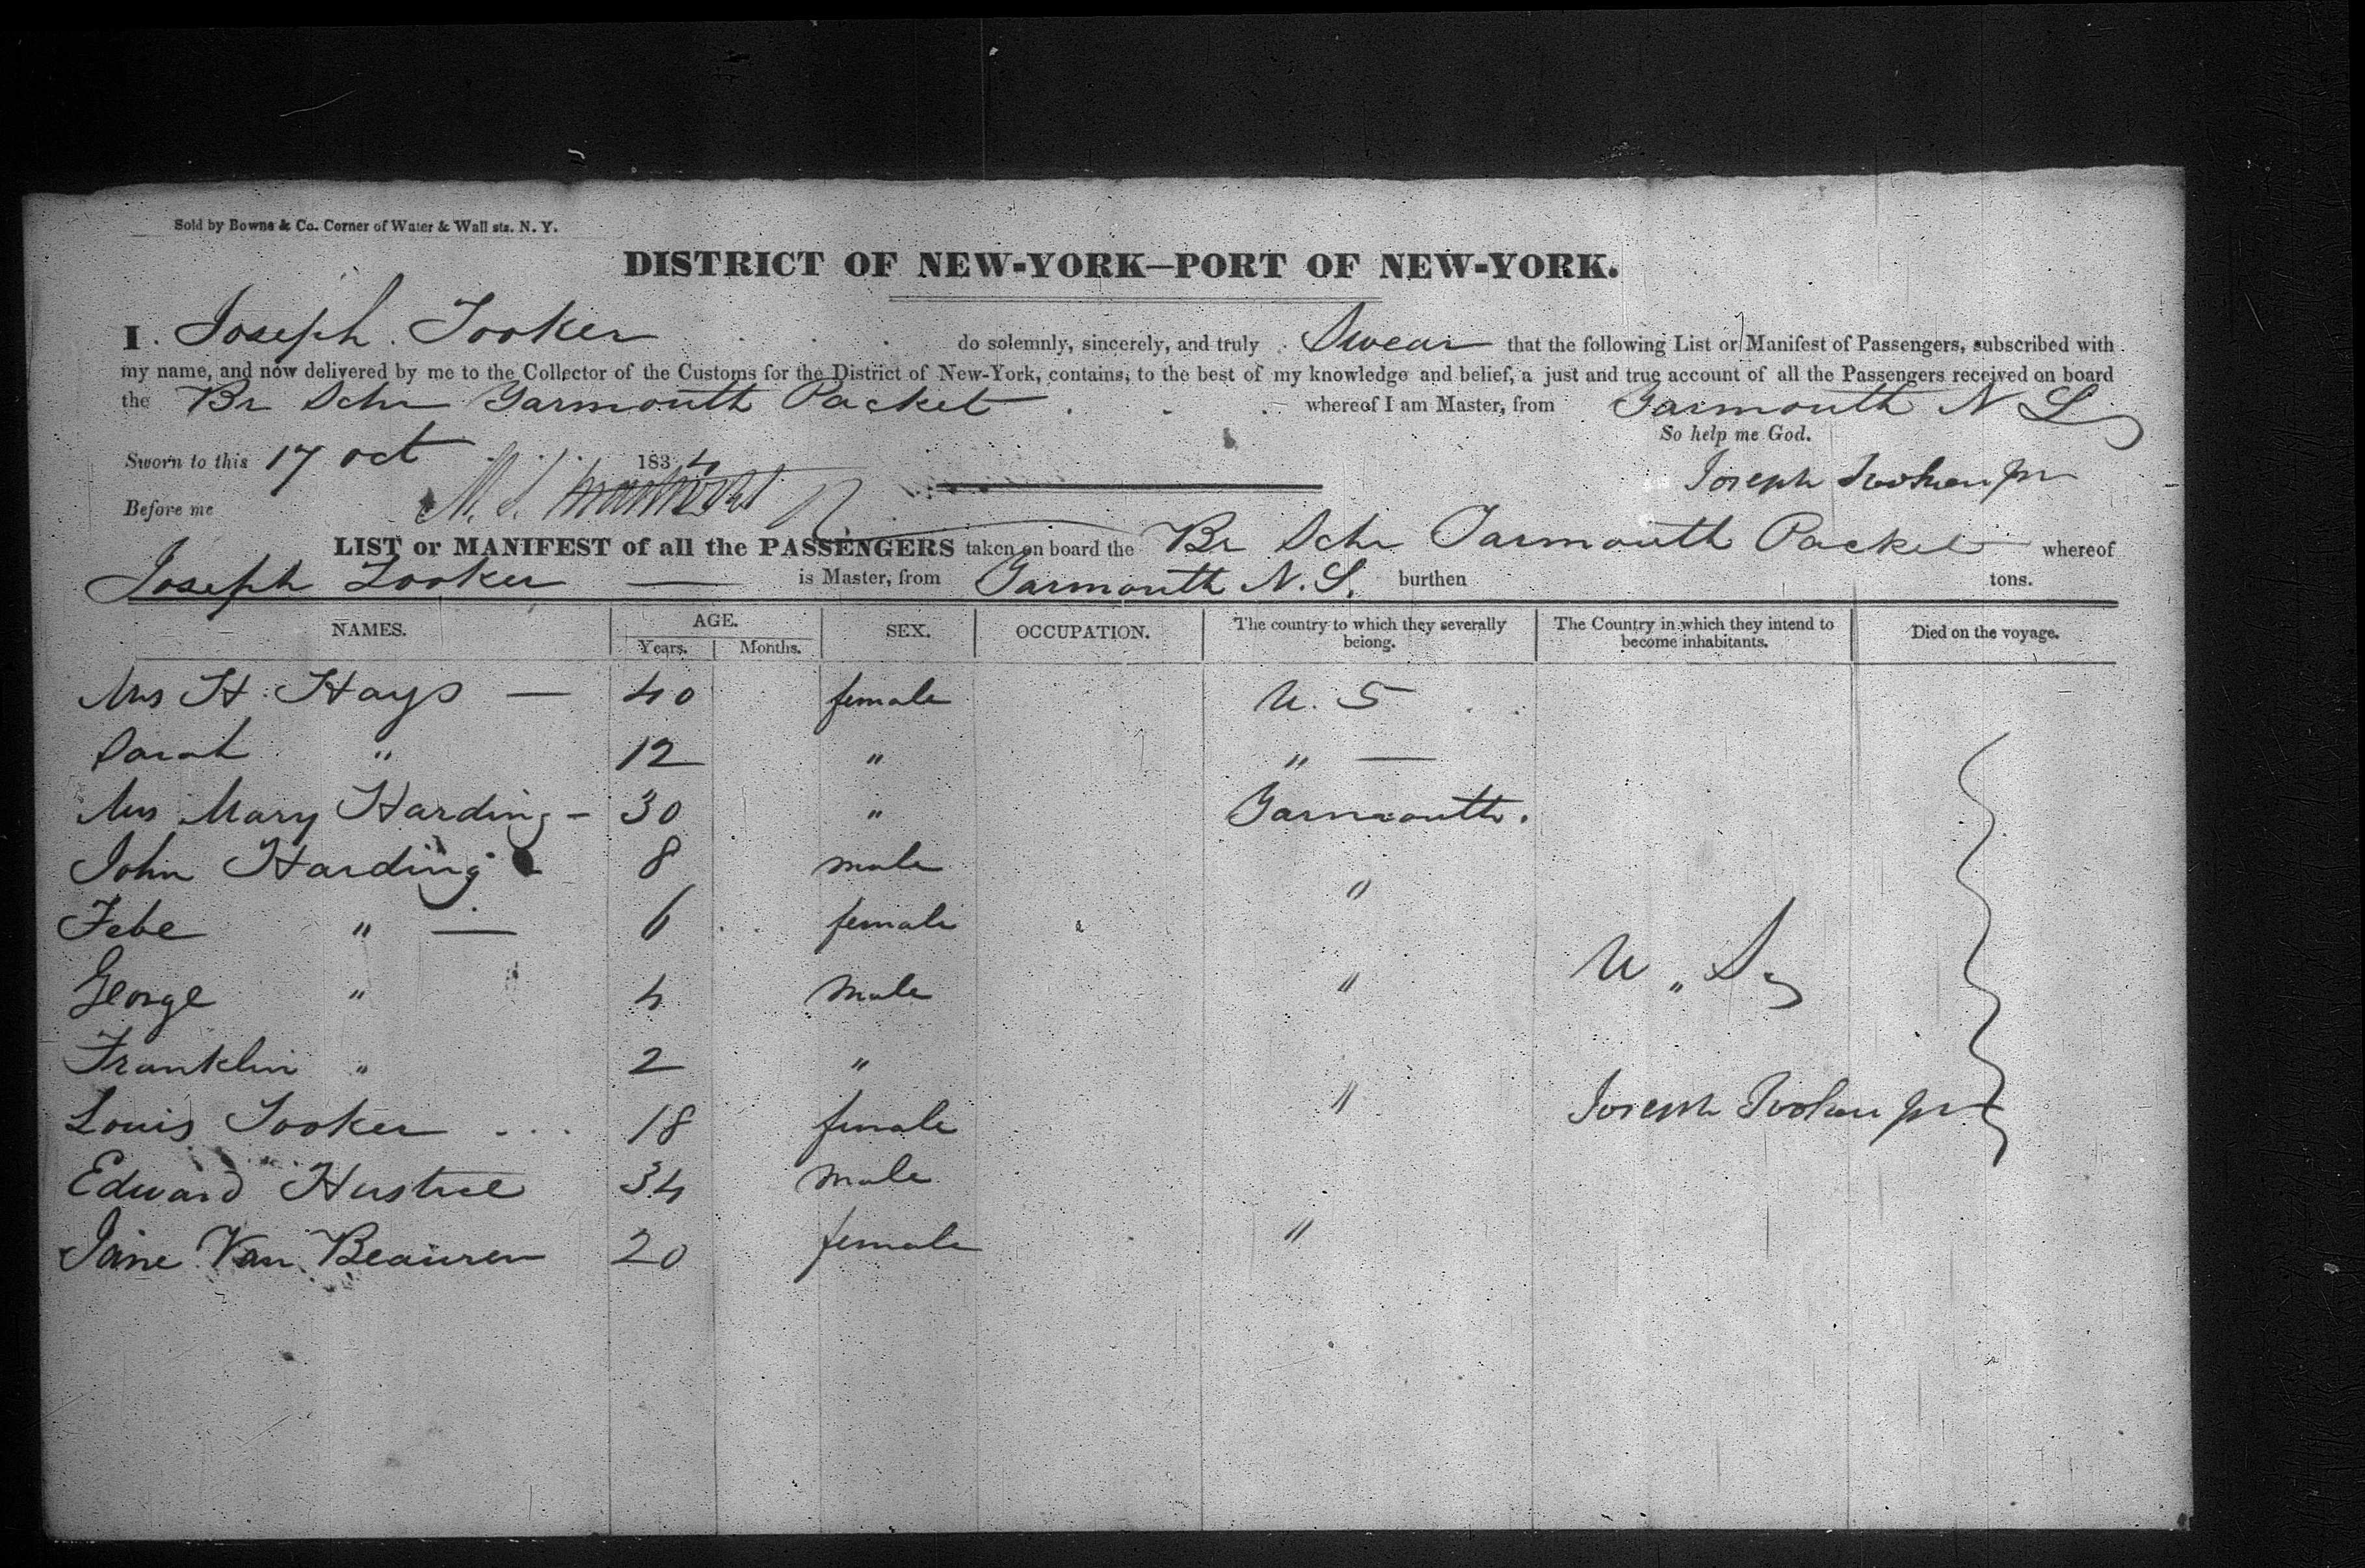 Sold by Bowne & Co. Corner of Water & Wall sts. N. Y.
DISTRICT OF NEW-YORK—PORT OF NEW-YORK.
I. Joseph Tooker do solemnly, sincerely, and truly Swear that the following List or Manifest of Passengers, subscribed with
my name, and now delivered by me to the Collector of the Customs for the District of New-York, contains, to the best of my knowledge and belief, a just and true account of all the Passengers received on board
the Br Schr Yarmouth Packet whereof I am Master, from Yarmouth N S
So help me God.
Sworn to this 17 Oct 1834
Joseph Tooker Jr
Before me
LIST or MANIFEST of all the PASSENGERS taken on board the Br Schr Yarmouth Packet whereof
Joseph Tooker — is Master, from Yarmouth N. S. burthen tons.
NAMES. AGE. Years. Months. SEX. OCCUPATION. The country to which they severally belong. The Country in which they intend to become inhabitants. Died on the voyage.
Mrs H. Hays — 40 female U. S
Sarah " 12 " " —
Mrs Mary Harding - 30 " Yarmouth.
John Harding 8 male "
Febe " — 6 female
George " 4 male " U " S
Franklin " 2 "
Louis Tooker 18 female " Joseph Tooker Jr
Edward 34 male
Jane Van 20 female "